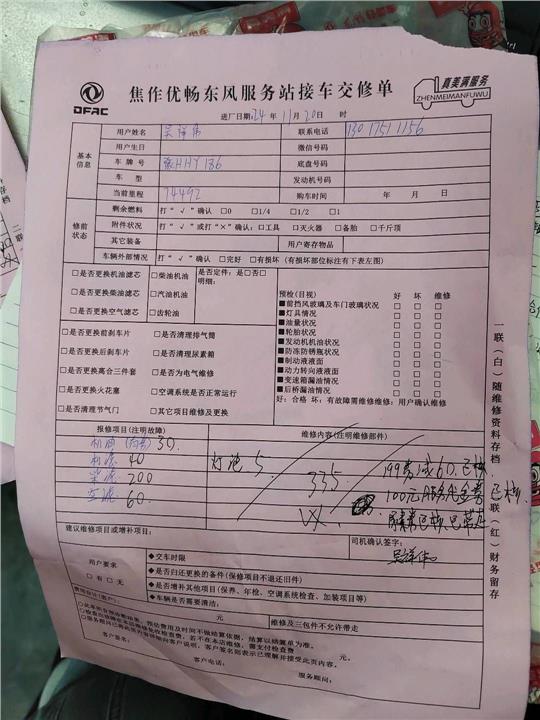 DFAC
焦作优畅东风服务站接车交修单
真美满服务
ZHENMEIMANFUWU
进厂日期:24 年 11 月 20 日 时
基本信息
用户姓名 联系电话 13017511156
用户生日 微信号码
车牌号 HHY186 底盘号码
车型 发动机号码
当前里程 74492 购车时间 年 月 日
修前状态
剩余燃料 打“√”确认 □0 □1/4 □1/2 □1
附件状况 打“√”或打“×”确认:□工具 □灭火器 □备胎 □千斤顶
其它装备 用户寄存物品
车辆外部情况 打“√”确认 □完好 □有损坏(有损坏部位标注有下表左图)
□是否更换机油滤芯 □柴油机油 是否定件:是□否□
□是否更换柴油滤芯 □汽油机油 明细:
□是否更换空气滤芯 □齿轮油
□是否更换前刹车片 □是否清理排气筒
□是否更换后刹车片 □是否清理尿素箱
□是否更换离合三件套 □是否为电气维修
□是否更换火花塞 □空调系统是否正常运行
□是否清理节气门 □其它项目维修及更换
预检(目视) 好 坏 维修
■前挡风玻璃及车门玻璃状况 □ □ □
■灯具情况 □ □ □
■油量状况 □ □ □
■轮胎状况 □ □ □
■发动机机油状况 □ □ □
■防冻防锈瓶状况 □ □ □
■制动液液面 □ □ □
■动力转向液液面 □ □ □
■变速箱漏油情况 □ □ □
■后桥漏油情况 □ □ □
好:合格 坏:有故障需维修维修:用户确认维修
报修项目(注明故障) 维修内容(注明维修部件)
机油 30.
机滤 40
柴滤 200
空滤 60.
灯泡 5
335
建议维修项目或增补项目:
司机确认签字:
用户要求
□有 □无
◆交车时限
◆是否归还更换的备件(保修项目不退还旧件)
◆是否增补其他项目(保养、年检、空调系统检查、加装项目等)
◆车辆是否需要清洁:
元 维修及三包件不允许带走
元。
客户签名:
客户电话:
服务顾问:
一联(白)随维修资料存档
联(红)财务留存